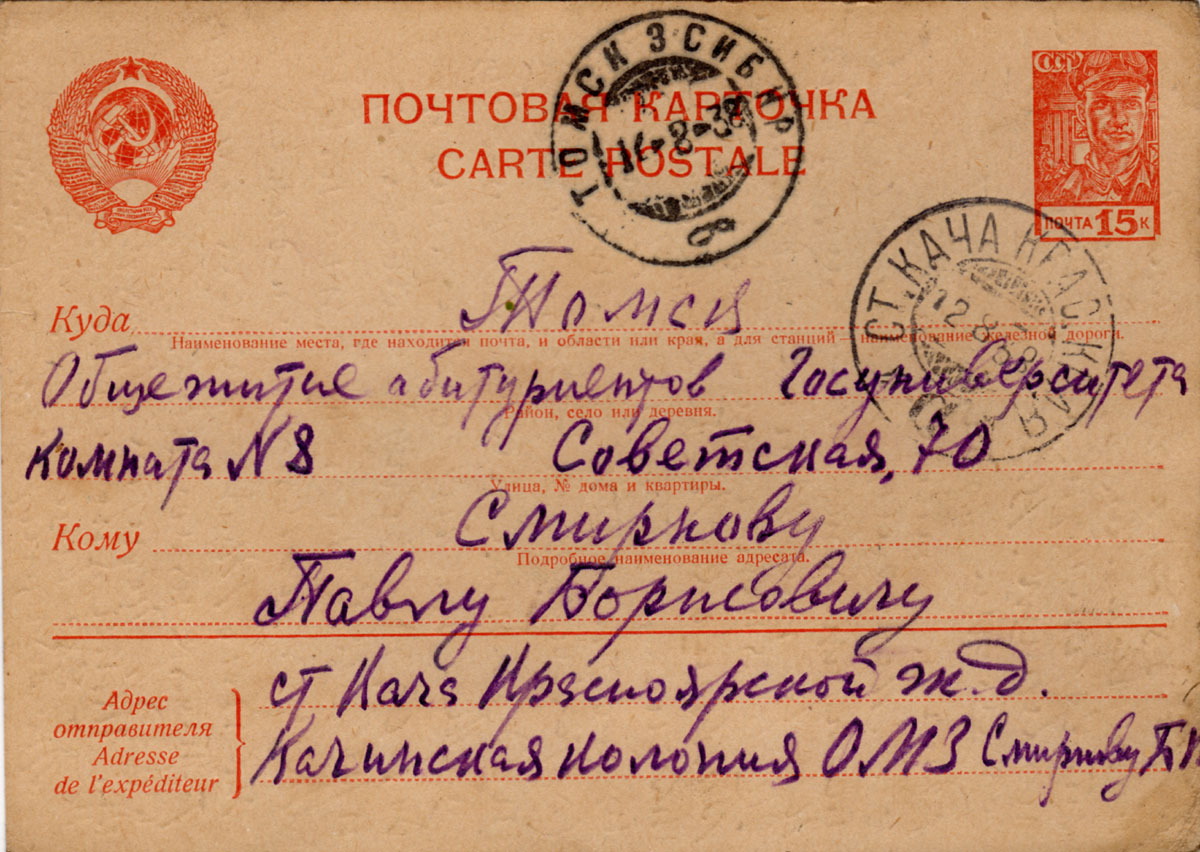 ПОЧТОВАЯ КАРТОЧКА
CARTE POSTALE
ТОМСК З СИБКР
8-38
СССР
ПОЧТА 15 К
СТ. КАЧА КРАСН
12 8
Куда Томск
Наименование места, где находится почта, и области или края, а для станций—наименование железной дороги.
Общежитие абитуриентов Госуниверситета
Район, село или деревня.
комната N 8 Советская, 70
Улица, № дома и квартиры.
Кому Смирнову
Подробное наименование адресата.
Павлу Борисовичу
Адрес отправителя
Adresse de l'expéditeur
ст Кача Красноярской ж.д.
Качинская колония ОМЗ Смирнову Б